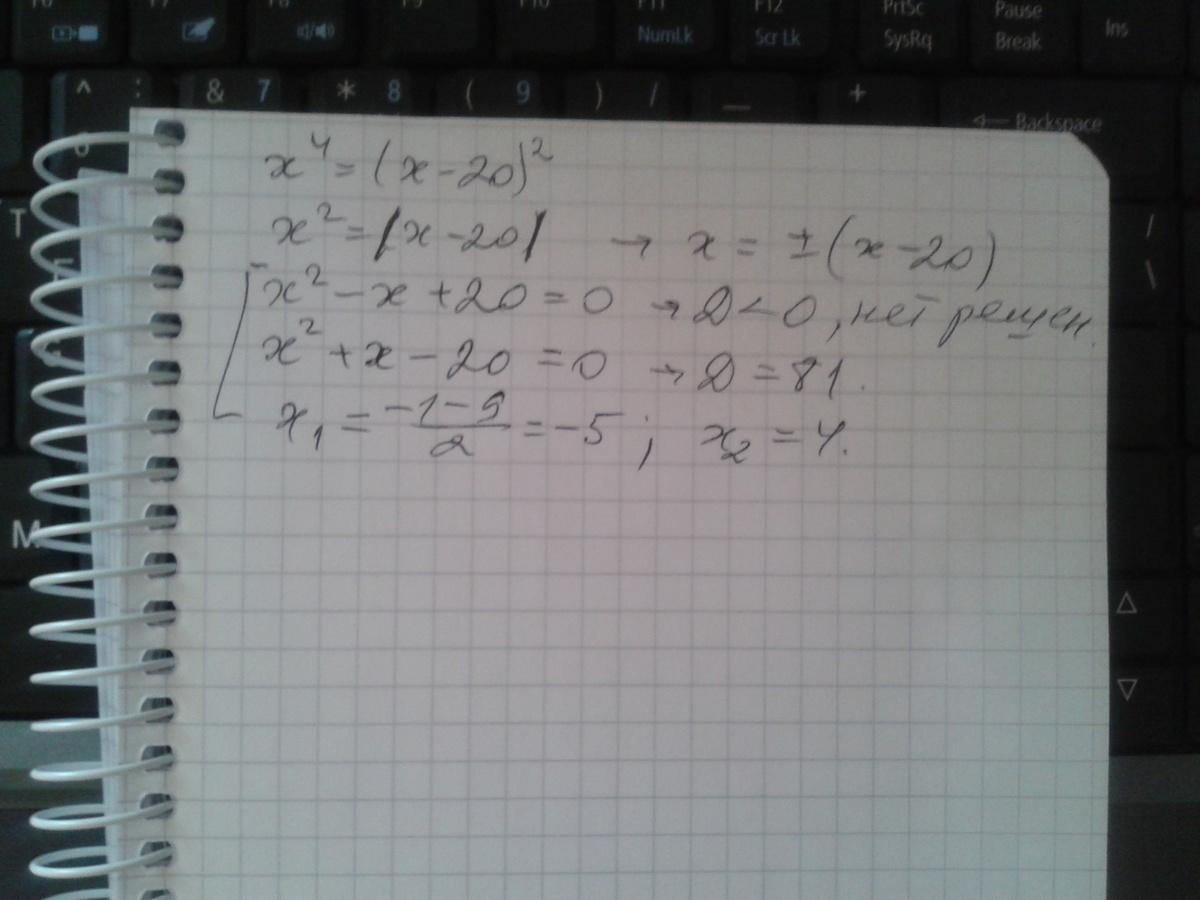 F6 F7 F8 F9 F10 F11 F12 PrtSc Pause
NumLk Scr Lk SysRq Break Ins
^ : & 7 * 8 ( 9 ) / _ +
6 Backspace
T / \
M
x⁴ = (x - 20)²
x² = |x - 20| → x = ±(x - 20)
x² - x + 20 = 0 → D < 0, нет решен.
x² + x - 20 = 0 → D = 81.
x₁ = (-1 - 9)/2 = -5; x₂ = 4.